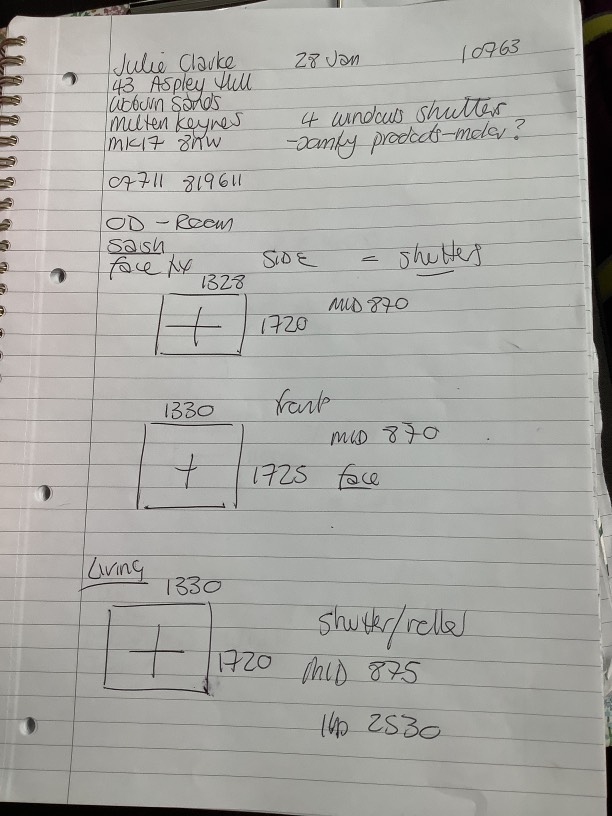 Julie Clarke 28 Jan 10963
43 Aspley Hill
Woburn Sands
Milten Keynes 4 windows shutters
MK17 8NW products
07711 819611
OD - Room
Sash SIDE = shutters
face fix
1328
MID 870
1720
1330 front
MID 870
1725 face
Living 1330
shutter/roller
1720 MID 875
2530